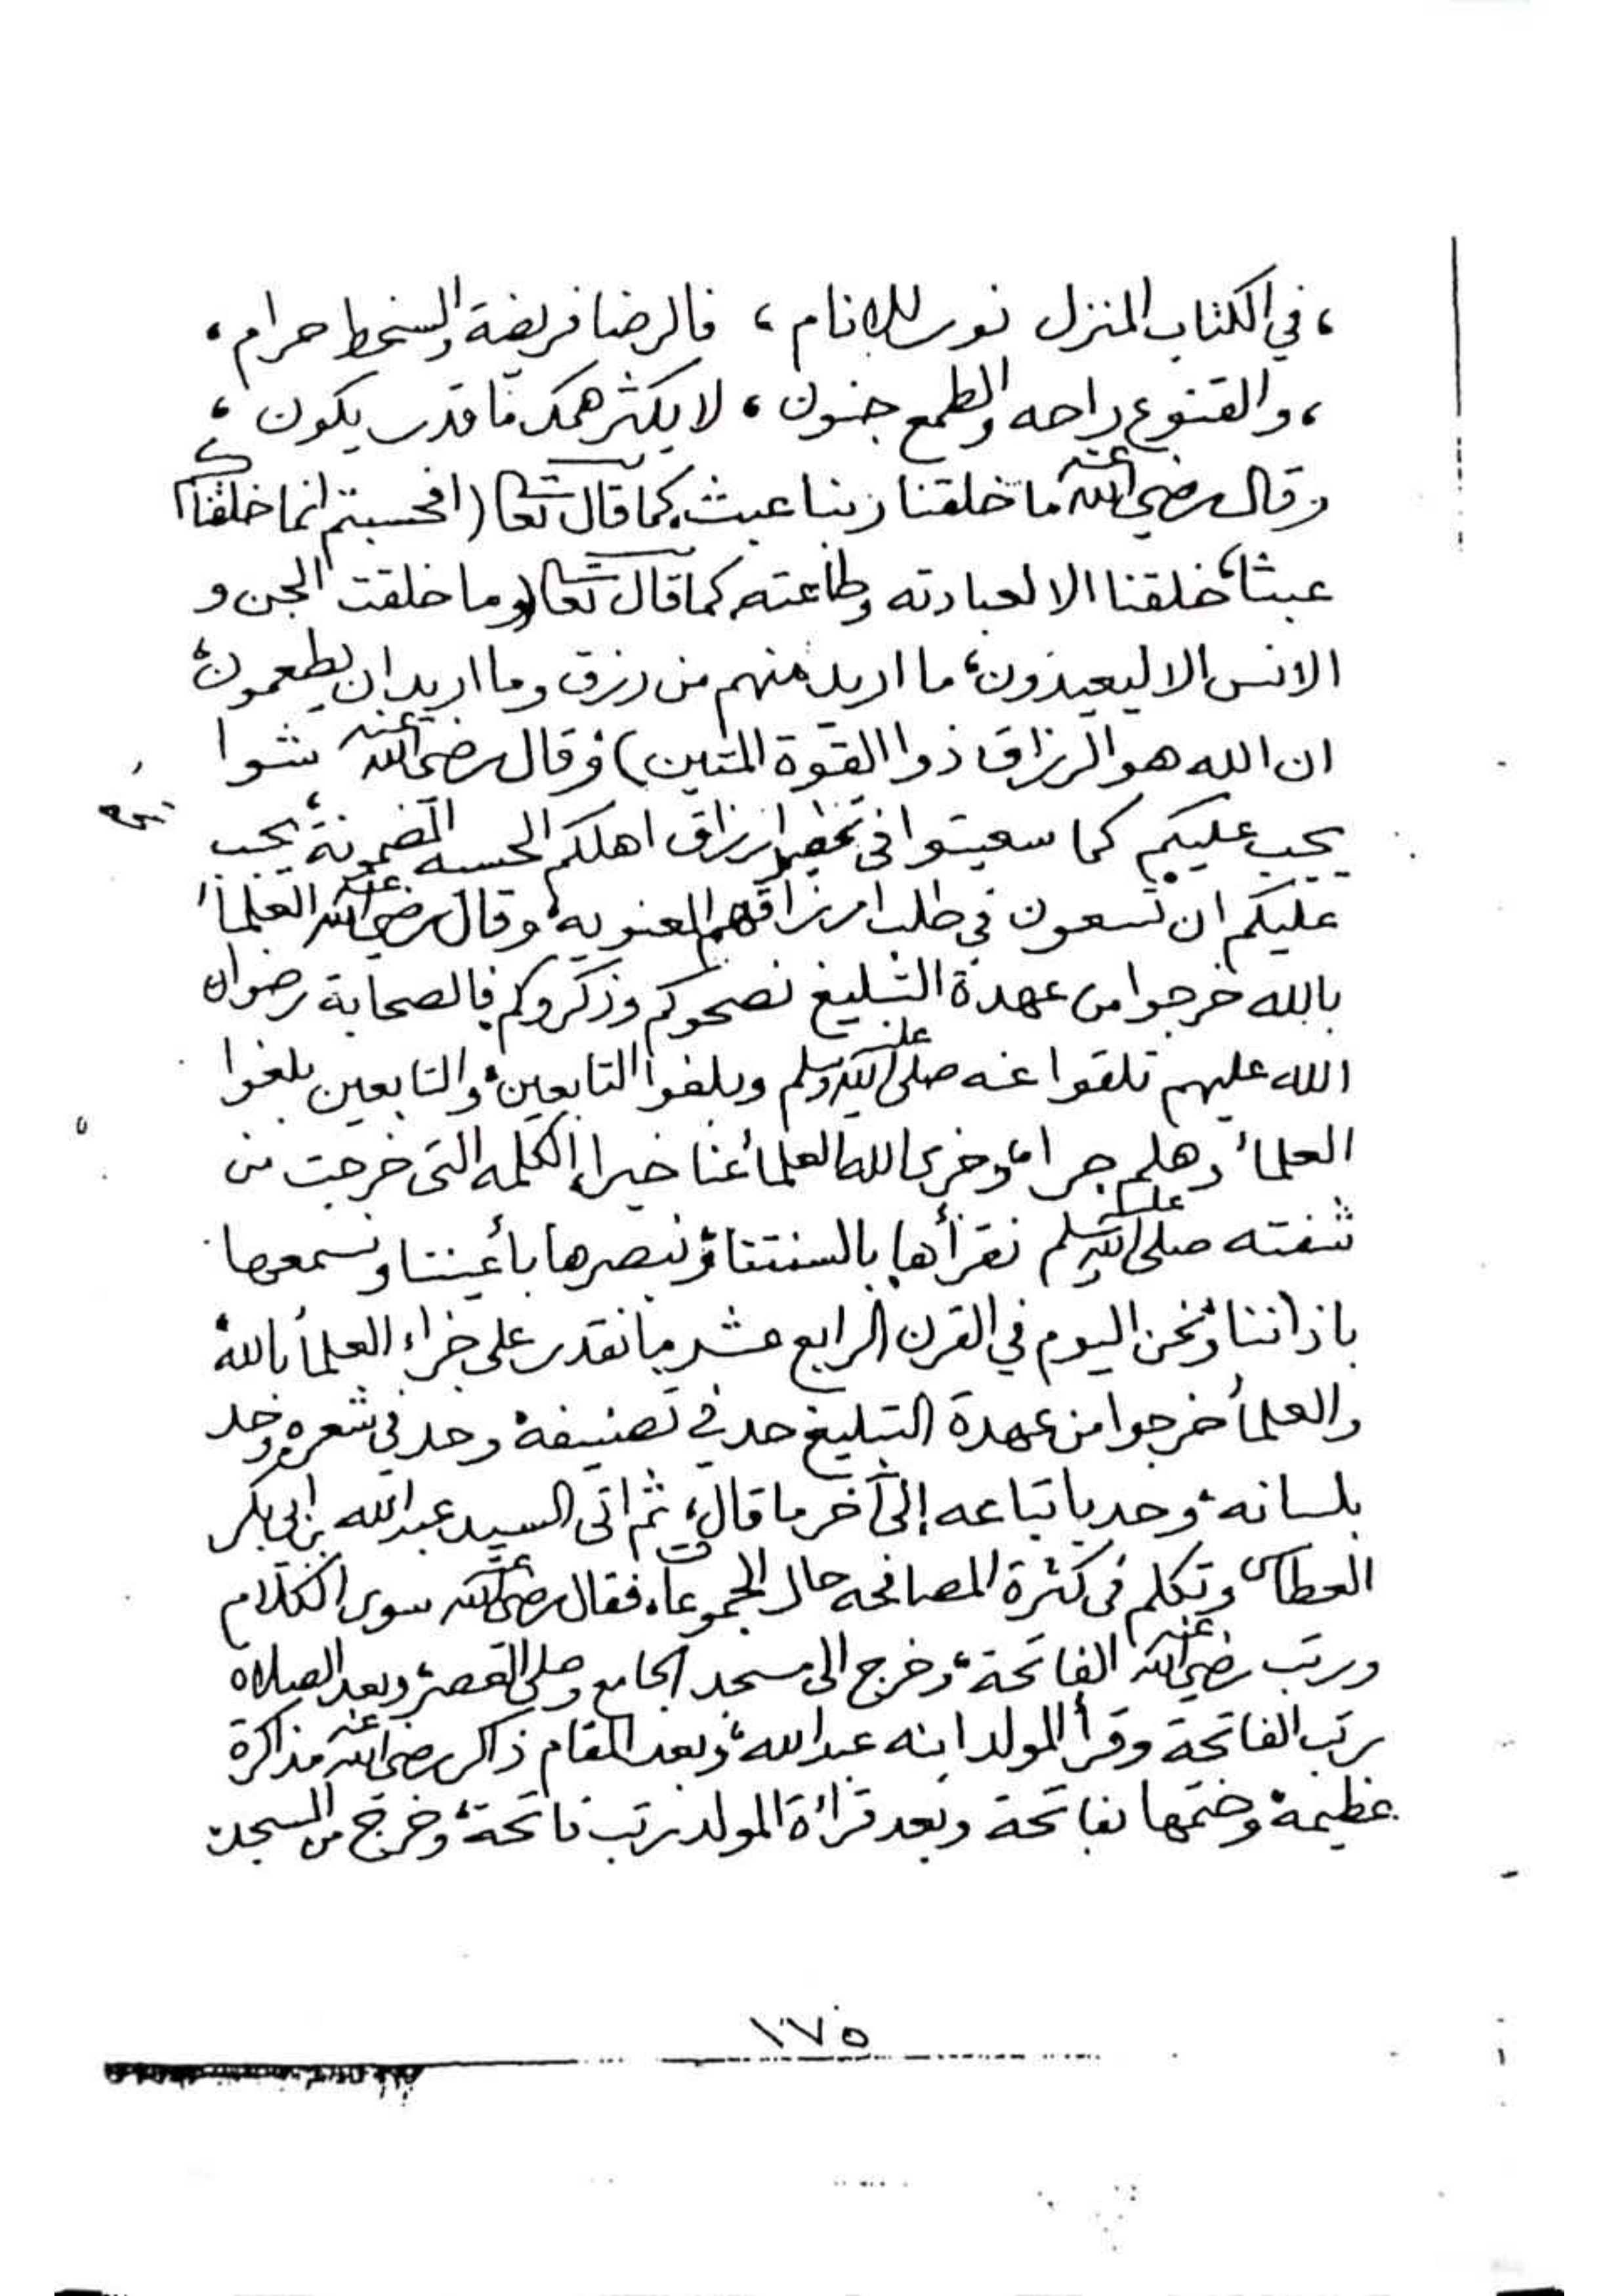 ، في الكتاب المنزل نور للانام ، فالرضا فريضة والسخط حرام ،
، والقنوع راحه والطمع جنون ، لا يكثر همك ما قدر يكون ،
وقال رضي الله عنه ما خلقنا ربنا عبث، كما قال تعالى (افحسبتم انما خلقناكم
عبثا، خلقنا الا لعبادته وطاعته، كما قال تعالى (وما خلقت الجن و
الانس الا ليعبدون، ما اريد منهم من رزق وما اريد ان يطعمون،
ان الله هو الرزاق ذوا القوة المتين) وقال رضي الله عنه شوا
يجب عليكم كما سعيتوا في تحضير ارزاق اهلكم الحسيه المضمونة، يجب
عليكم ان تسعون في طلب ارزاقهم المعنويه، وقال رضي الله عنه العلمأ
بالله خرجوا من عهدة التبليغ نصحوكم وذكروكم، فالصحابة رضوان
الله عليهم تلقوا عنه صلى الله عليه وسلم وبلغوا التابعين، والتابعين بلغوا
العلمأ وهلم جرا، وجزى الله العلمأ عنا خيرا، الكلمه التي خرجت من
شفته صلى الله عليه وسلم نقرأها بالسنتنا، ونبصرها بأعيننا ونسمعها
باذاننا، ونحن اليوم في القرن الرابع عشر ما نقدر على جزاء العلمأ بالله،
والعلمأ خرجوا من عهدة التبليغ حد في تصنيفه، وحد في شعره، وحد
بلسانه، وحد باتباعه إلى آخر ما قال، ثم اتى السيد عبدالله بن ابي بكر
العطاس وتكلم في كثرة المصافحه حال الجموعات، فقال رضي الله عنه سوى الكلام
ورتب رضي الله عنه الفاتحة، وخرج الى مسجد الجامع وصلى العصر، وبعد الصلاه
رتب الفاتحة وقرأ المولد ابنه عبدالله، وبعد المقام ذاكر رضي الله عنه مذاكرة
عظيمة، وختمها بفاتحة وبعد قرائة المولد رتب فاتحة، وخرج من المسجد
١٧٥